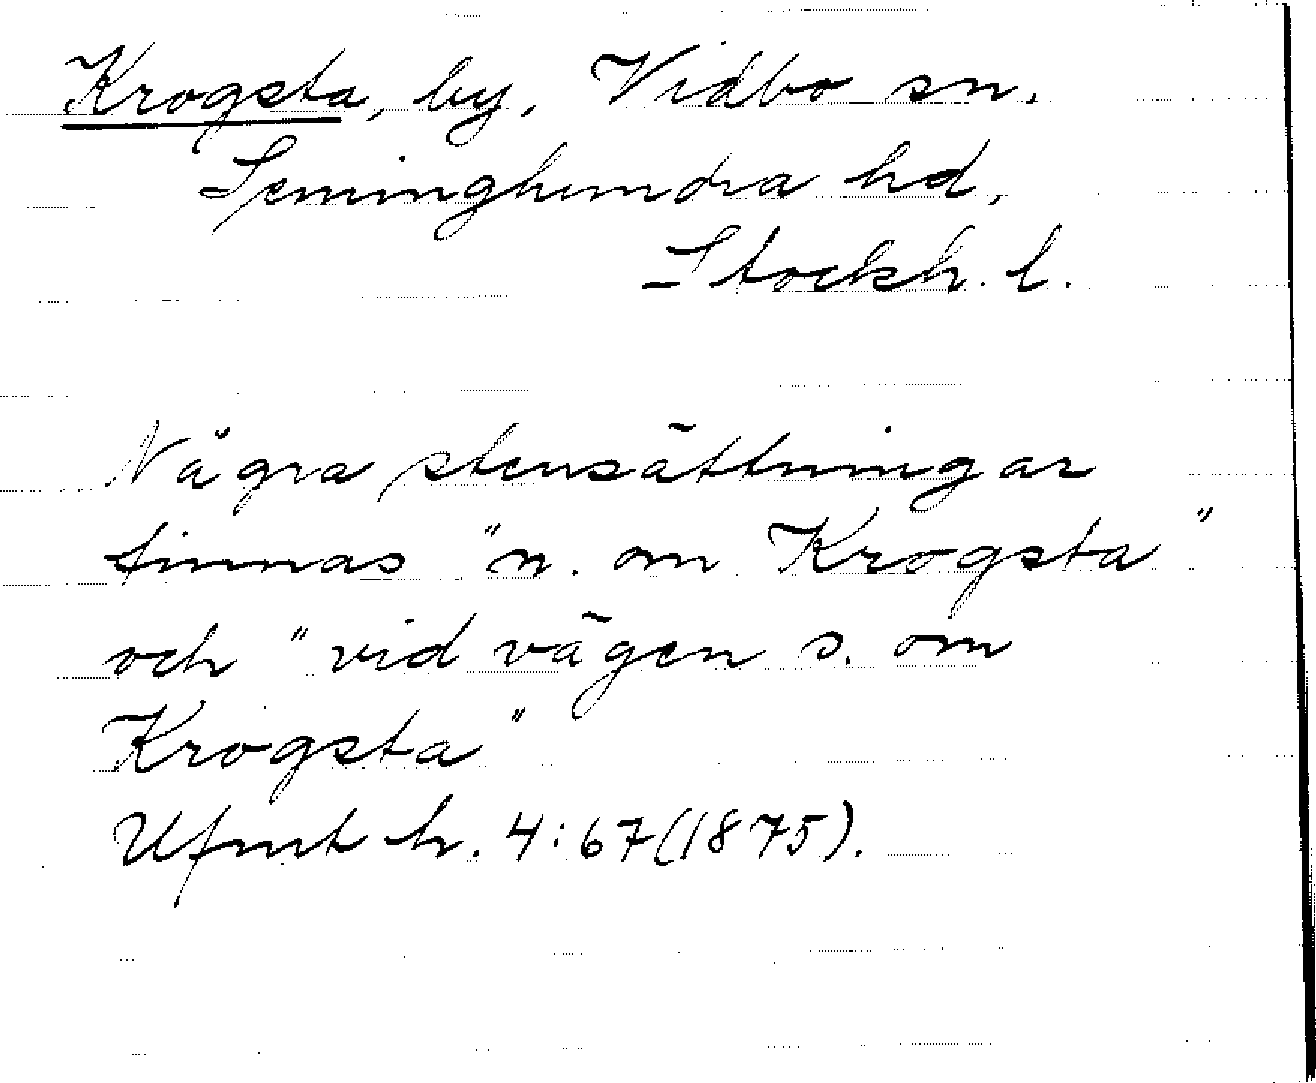 Krogsta, by, Vidbo sn.
Seminghundra hd,
Stockh. l.
Några stensättningar
finnas "n. om Krogsta"
och "vid vägen s. om
Krogsta"
Ufmt h. 4:67 (1875).